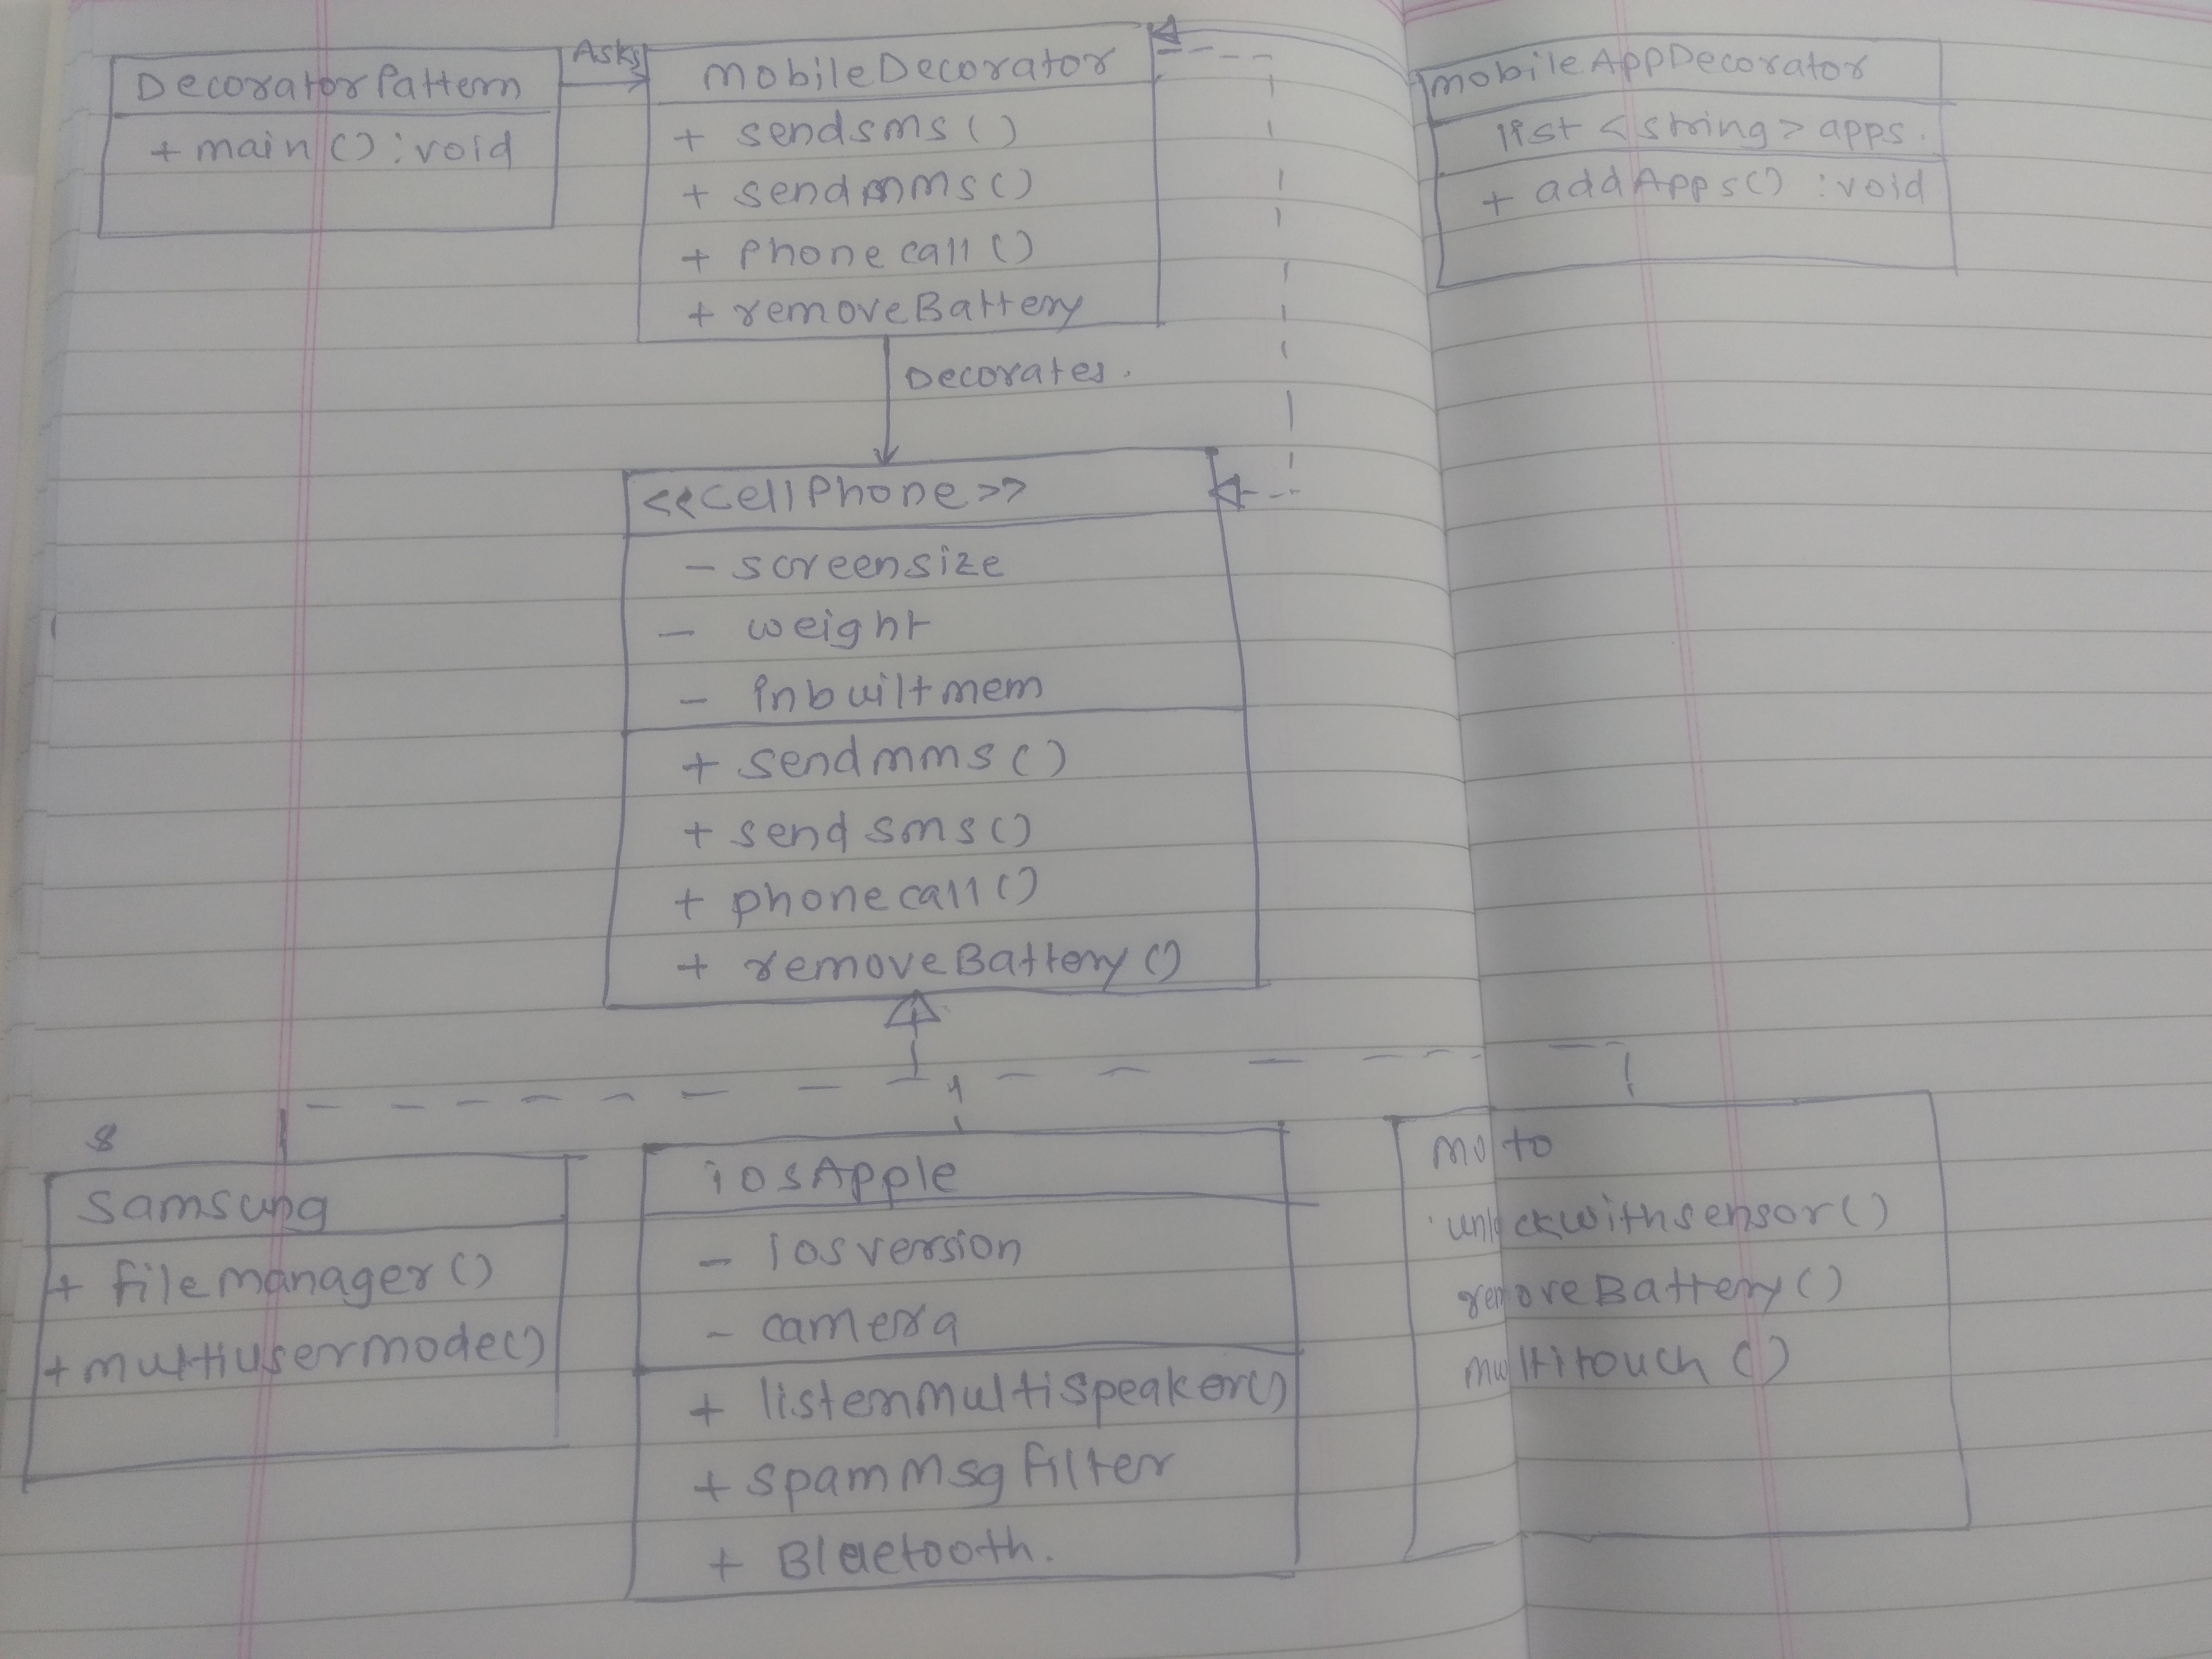 DecoratorPattern
+ main() : void
Asks
mobileDecorator
+ sendsms()
+ sendmms()
+ Phonecall()
+ removeBattery
mobileAppDecorator
list <string> apps.
+ addApps() : void
Decorates.
<<cellPhone>>
- screensize
- weight
- inbuiltmem
+ sendmms()
+ sendsms()
+ phonecall()
+ removeBattery()
8
Samsung
+ filemanager()
+ multiusermode()
iosApple
- iosversion
- camera
+ listenmultispeaker()
+ spamMsgfilter
+ Bluetooth.
moto
unlockwithsensor()
removeBattery()
multitouch()